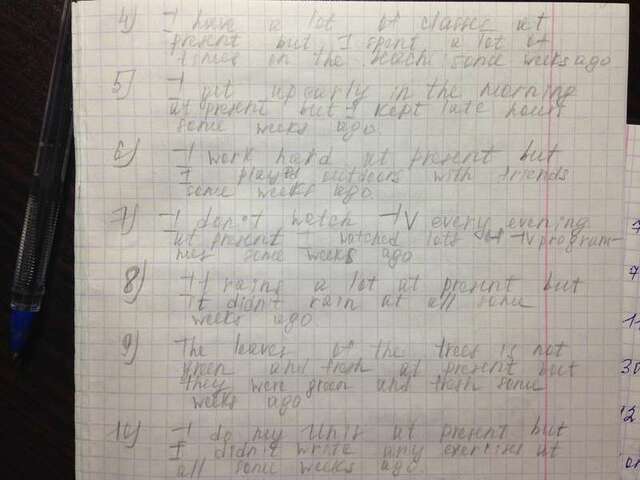 4) I have a lot of classes at
present but I spent a lot of
times on the beach some weeks ago
5) I get up early in the morning
at present but I kept late hours
some weeks ago.
6) I work hard at present but
I played outdoors with friends
some weeks ago.
7) I don't watch TV every evening
at present I watched lots of TV program-
mes some weeks ago
8) It rains a lot at present but
it didn't rain at all some
weeks ago.
9) The leaves of the trees is not
green and fresh at present but
they were green and fresh some
weeks ago
10) I do my Units at present but
I didn't write any exercise at
all some weeks ago.
7
7
30
12